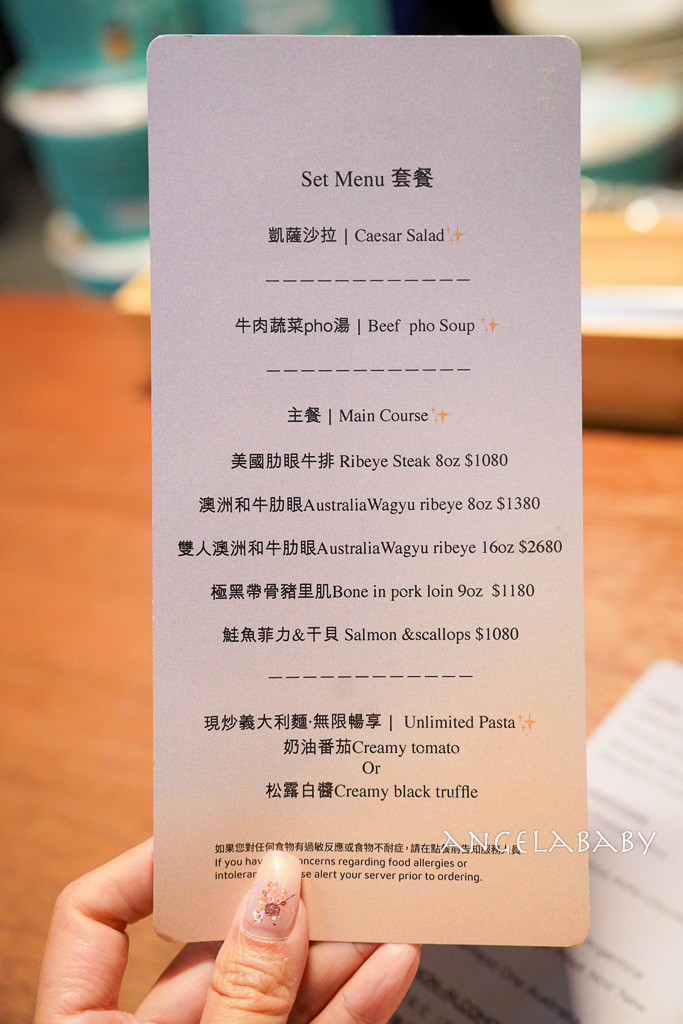 MENU
Set Menu 套餐
凱薩沙拉 | Caesar Salad✨
————————————
牛肉蔬菜pho湯 | Beef pho Soup ✨
————————————
主餐 | Main Course✨
美國肋眼牛排 Ribeye Steak 8oz $1080
澳洲和牛肋眼AustraliaWagyu ribeye 8oz $1380
雙人澳洲和牛肋眼AustraliaWagyu ribeye 16oz $2680
極黑帶骨豬里肌Bone in pork loin 9oz $1180
鮭魚菲力&干貝 Salmon &scallops $1080
————————————
現炒義大利麵·無限暢享 | Unlimited Pasta✨
奶油番茄Creamy tomato
Or
松露白醬Creamy black truffle
如果您對任何食物有過敏反應或食物不耐症，請在點餐前告知服務人員
If you have concerns regarding food allergies or
alert your server prior to ordering.
ANGELABABY